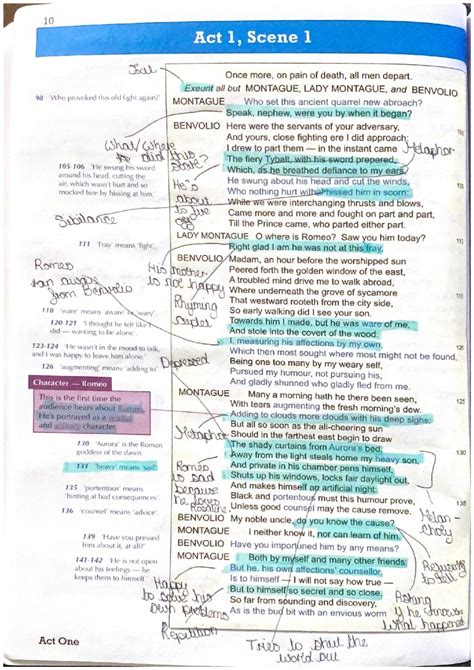 10
Act 1, Scene 1
Once more, on pain of death, all men depart.
Exeunt all but MONTAGUE, LADY MONTAGUE, and BENVOLIO
98 'Who provoked this old fight again?'
MONTAGUE Who set this ancient quarrel new abroach?
Speak, nephew, were you by when it began?
BENVOLIO Here were the servants of your adversary,
And yours, close fighting ere I did approach:
I drew to part them — in the instant came
Metaphor
The fiery Tybalt, with his sword prepared,
Which, as he breathed defiance to my ears,
105-106 'He swung his sword
around his head, cutting the
air, which wasn't hurt and so
mocked him by hissing at him.'
He swung about his head and cut the winds,
Who nothing hurt withal hissed him in scorn:
He's
about
to
While we were interchanging thrusts and blows,
Came more and more and fought on part and part,
Till the Prince came, who parted either part.
Sibilance
LADY MONTAGUE O where is Romeo? Saw you him today?
Right glad I am he was not at this fray.
111 'Fray' means 'fight'.
BENVOLIO Madam, an hour before the worshipped sun
Peered forth the golden window of the east,
A troubled mind drive me to walk abroad,
Where underneath the grove of sycamore
That westward rooteth from this city side,
So early walking did I see your son.
Romeo
ran away
from Benvolio
His mother
is not happy
Rhyming
118 'ware' means 'aware' or 'wary'.
Towards him I made, but he was ware of me,
And stole into the covert of the wood:
120-121 'I thought he felt like I
did — wanting to be alone'.
I, measuring his affections by my own,
Which then most sought where most might not be found,
Being one too many by my weary self,
Pursued my humour, not pursuing his,
And gladly shunned who gladly fled from me.
123-124 'He wasn't in the mood to talk,
and I was happy to leave him alone.'
126 'augmenting' means 'adding to'
Depressed
MONTAGUE Many a morning hath he there been seen,
With tears augmenting the fresh morning's dew.
Adding to clouds more clouds with his deep sighs.
But all so soon as the all-cheering sun
Should in the farthest east begin to draw
The shady curtains from Aurora's bed,
Away from the light steals home my heavy son,
And private in his chamber pens himself,
Shuts up his windows, locks fair daylight out,
And makes himself an artificial night:
Black and portentous must this humour prove,
Unless good counsel may the cause remove.
Character — Romeo
This is the first time the
audience hears about Romeo.
He's portrayed as a wistful
and solitary character.
Metaphor
130 'Aurora' is the Roman
goddess of the dawn.
131 'heavy' means 'sad'
135 'portentous' means
'hinting at bad consequences'
136 'counsel' means 'advice'.
Romeo
is sad
because
he loves
Rosaline
Melancholy
BENVOLIO My noble uncle, do you know the cause?
MONTAGUE I neither know it, nor can learn of him.
BENVOLIO Have you importuned him by any means?
139 'Have you pressed
him about it, at all?'
MONTAGUE Both by myself and many other friends:
But he, his own affections' counsellor,
Is to himself — I will not say how true —
But to himself so secret and so close,
So far from sounding and discovery,
As is the bud bit with an envious worm
141-142 'He is not open
about his feelings — he
keeps them to himself'
Refuses
to tell
Happy
to solve his
own problems
Asking
if he knows
what happened
Repetition
Tries to shut the
world out
Act One